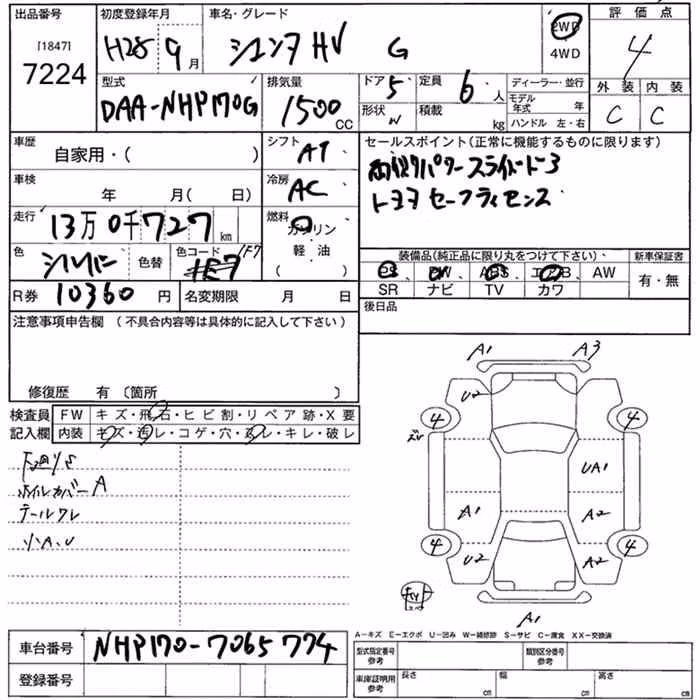 出品番号 初度登録年月 車名・グレード 評価点
[1847]
7224
H28 9月 シエンタ HV G
2WD
4WD
4
外装 内装
C C
型式 排気量 ドア 5 定員 6人 ディーラー・並行
DAA-NHP170G 1500CC 形状 W 積載 kg モデル年式 年
ハンドル 左・右
車歴 自家用・( )
シフト AT
セールスポイント(正常に機能するものに限ります)
両側パワースライドドア
トヨタ セーフティセンス
車検 年 月( 日)
冷房 AC
走行 13万0千727km
燃料 ガソリン
軽油
( )
色 シルバー 色替 色コード 1F7
装備品(純正品に限り丸をつけて下さい) 新車保証書
PS PW ABS エアB AW
SR ナビ TV カワ
有・無
R券 10360円 名変期限 月 日
後日品
注意事項申告欄 (不具合内容等は具体的に記入して下さい)
修復歴 有 〔箇所 〕
検査員 FW キズ・飛石・ヒビ割・リペア跡・X要
記入欄 内装 キズ・汚レ・コゲ・穴・スレ・キレ・破レ
下廻りS
ホイルカバーA
テールワレ
小A、U
A1 A3
U2
4 4
UA1
A1 A2
4 4
U2 A2
A1
A−キズ E−エクボ U−凹み W−補修跡 S−サビ C−腐食 XX−交換済
車台番号 NHP170-7065774
登録番号
型式指定番号
参考
類別区分番号
参考
車庫証明用
参考
長さ cm 幅 cm 高さ cm